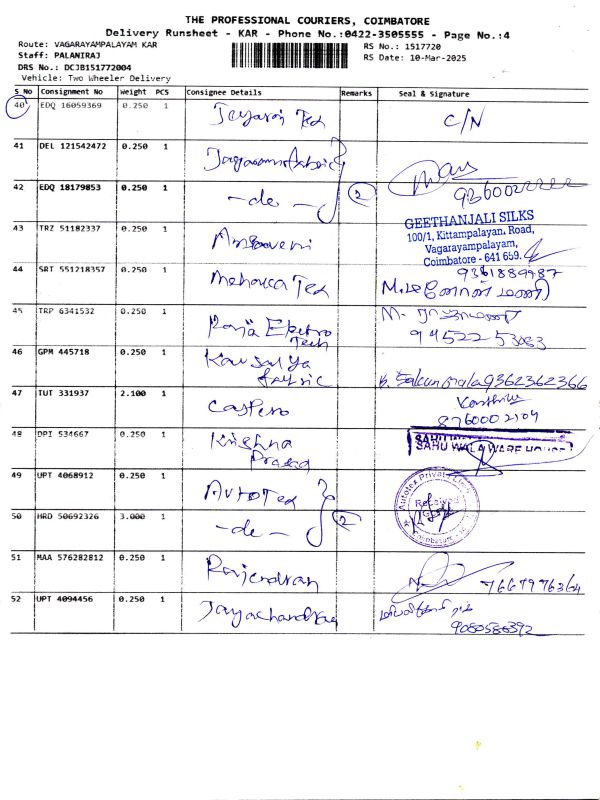 THE PROFESSIONAL COURIERS, COIMBATORE
Delivery Runsheet - KAR - Phone No.:0422-3505555 - Page No.:4
Route: VAGARAYAMPALAYAM KAR RS No.: 1517720
Staff: PALANIRAJ RS Date: 10-Mar-2025
DRS No.: DCJB151772004
Vehicle: Two Wheeler Delivery
S_No Consignment No Weight PCS Consignee Details Remarks Seal & Signature
40 EDQ 16059369 0.250 1 Jeyaram Tex C/N
41 DEL 121542472 0.250 1
42 EDQ 18179853 0.250 1 -do- 2
GEETHANJALI SILKS
100/1, Kittampalayan, Road,
Vagarayampalayam,
Coimbatore - 641 659.
43 TRZ 51182337 0.250 1
9361889987
44 SRT 551218357 0.250 1
45 TRP 6341532 0.250 1
9952253083
46 GPM 445718 0.250 1 Kausalya fabric 9362362366
47 TUT 331937 2.100 1
8760002109
48 DPI 534667 0.250 1 Krishna Prasad SAHU WALA WARE HOUSE
49 UPT 4068912 0.250 1 Auto Tex
Autotex Private Limited
Received
Coimbatore
50 HRD 50692326 3.000 1 -do- 2
51 MAA 576282812 0.250 1 Rajendran 7667976364
52 UPT 4094456 0.250 1 Jayachandran
9080586392